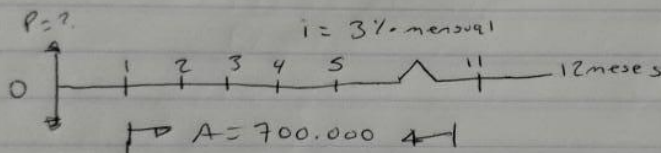 P=?
i = 3% mensual
0 1 2 3 4 5 11 12 meses
A = 700.000